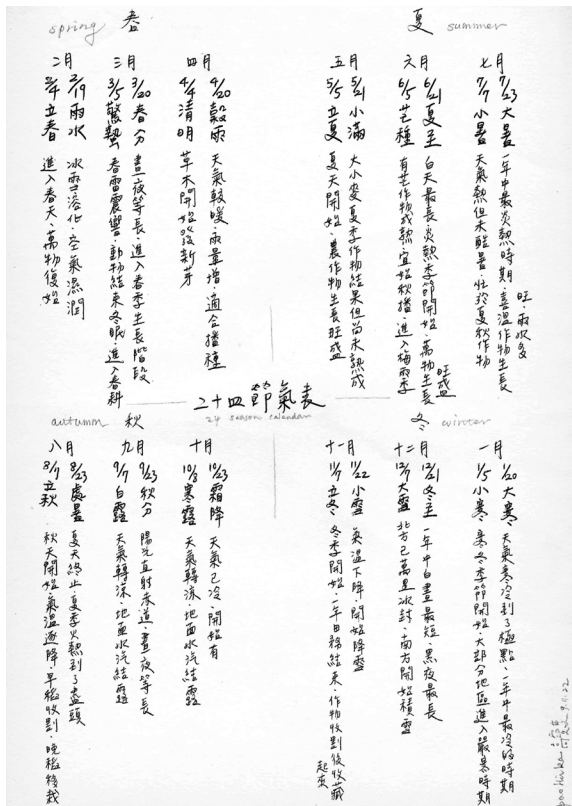 spring 春
二月
2/4 立春 進入春天、萬物復始
2/19 雨水 冰雪溶化、空氣濕潤
三月
3/5 驚蟄 春雷震響、動物結束冬眠、進入春耕
3/20 春分 晝夜等長、進入春季生長階段
四月
4/4 清明 草木開始發新芽
4/20 穀雨 天氣較暖、雨量增、適合播種
夏 summer
五月
5/5 立夏 夏天開始、農作物生長旺盛
5/21 小滿 大小麥夏季作物結果但尚未熟成
六月
6/5 芒種 有芒作物成熟、宜始秋播、進入梅雨季
6/21 夏至 白天最長、炎熱季節開始、萬物生長旺盛
七月
7/7 小暑 天氣熱但未酷暑、忙於夏秋作物
7/23 大暑 一年中最炎熱時期、喜溫作物生長旺、雨水多
二十四節氣表
24 season calendar
autumn 秋
八月
8/7 立秋 、秋天開始、氣溫逐降、早稻收割、晚稻移栽
8/23 處暑 夏天終止、夏季火熱到了盡頭
九月
9/7 白露 天氣轉涼、地面水汽結露
9/23 秋分 陽光直射赤道、晝夜等長
十月
10/8 寒露 天氣轉涼、地面水汽結露
10/23 霜降 天氣已冷、開始有
冬 winter
十一月
11/7 立冬 冬季開始、一年田務結束、作物收割後收藏起來
11/22 小雪 氣溫下降、開始降雪
十二月
12/7 大雪 北方已萬里冰封、南方開始積雪
12/21 冬至 一年中白晝最短、黑夜最長
一月
1/5 小寒 寒冬季節開始、大部分地區進入嚴寒時期
1/20 大寒 天氣寒冷到了極點、一年中最冷的時期
9.11.22